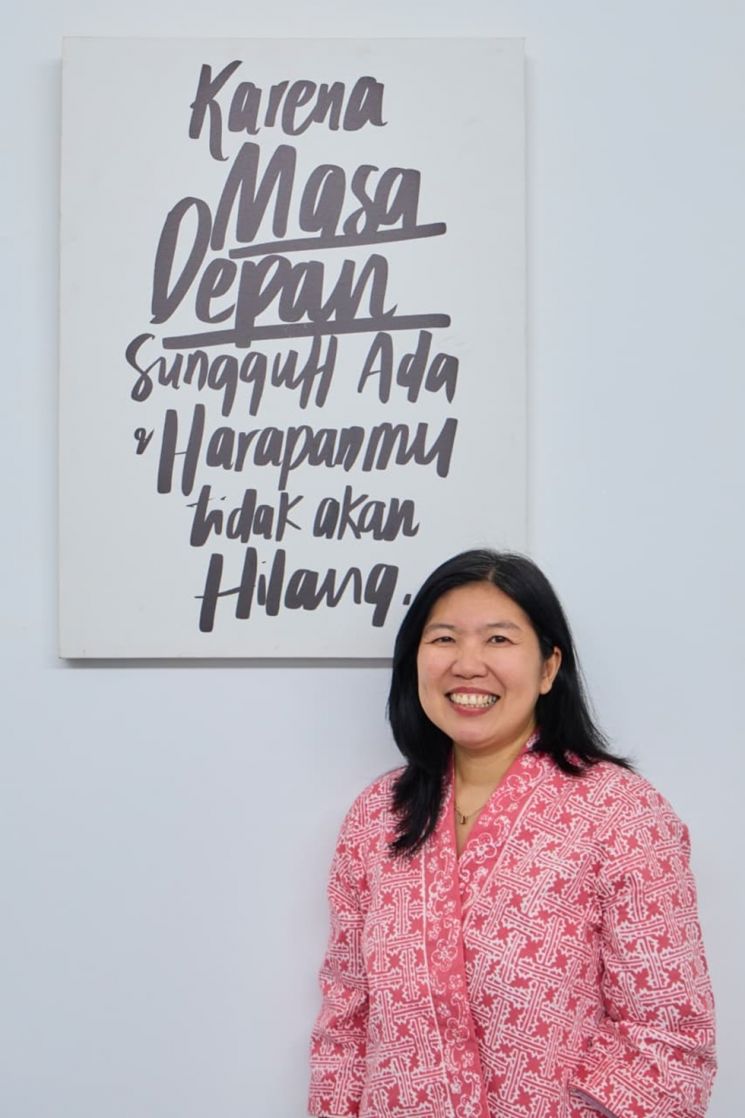 Karena
Masa
Depan
Sungguh Ada
& Harapanmu
tidak akan
Hilang.